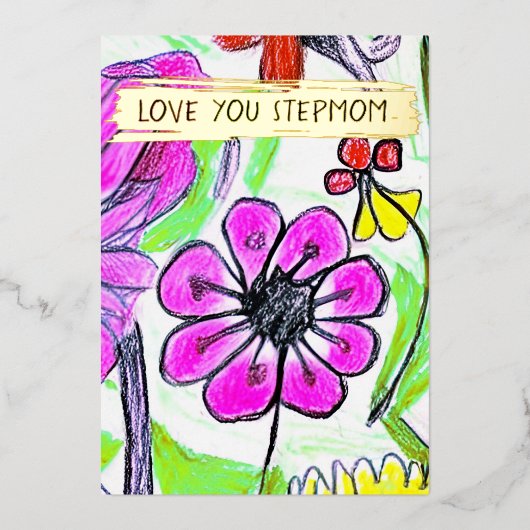 LOVE YOU STEPMOM